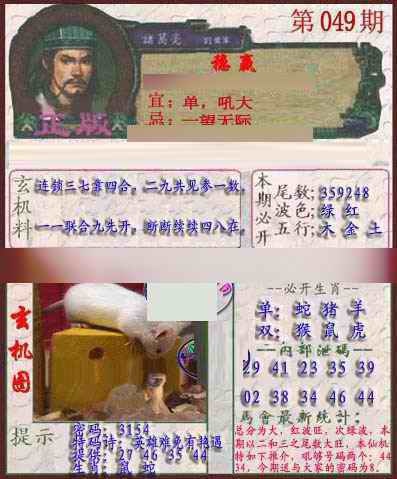 第049期
諸葛亮
稳赢
正版
宜：单，吼大
忌：一望无际
玄机料
连锁三七靠四合，二九共见参一数，
一一联合九先开，断断续续四八在，
本期必开
尾数：359248
波色：绿 红
五行：木 金 土
玄机图
--必开生肖--
单：蛇 猪 羊
双：猴 鼠 虎
内部泄码
29 41 23 35 39
02 38 34 46 44
馬會最新统计：
总分为大，红波旺，次绿波，本
期以二和三之尾数大旺，本仙机
特如下推介，吼够号码两个：44
34，今期送与大家的密码为8。
提示
密码：3154
特码诗：英雄难免有艳遇
提供：27 46 35 44
生肖：鼠 蛇